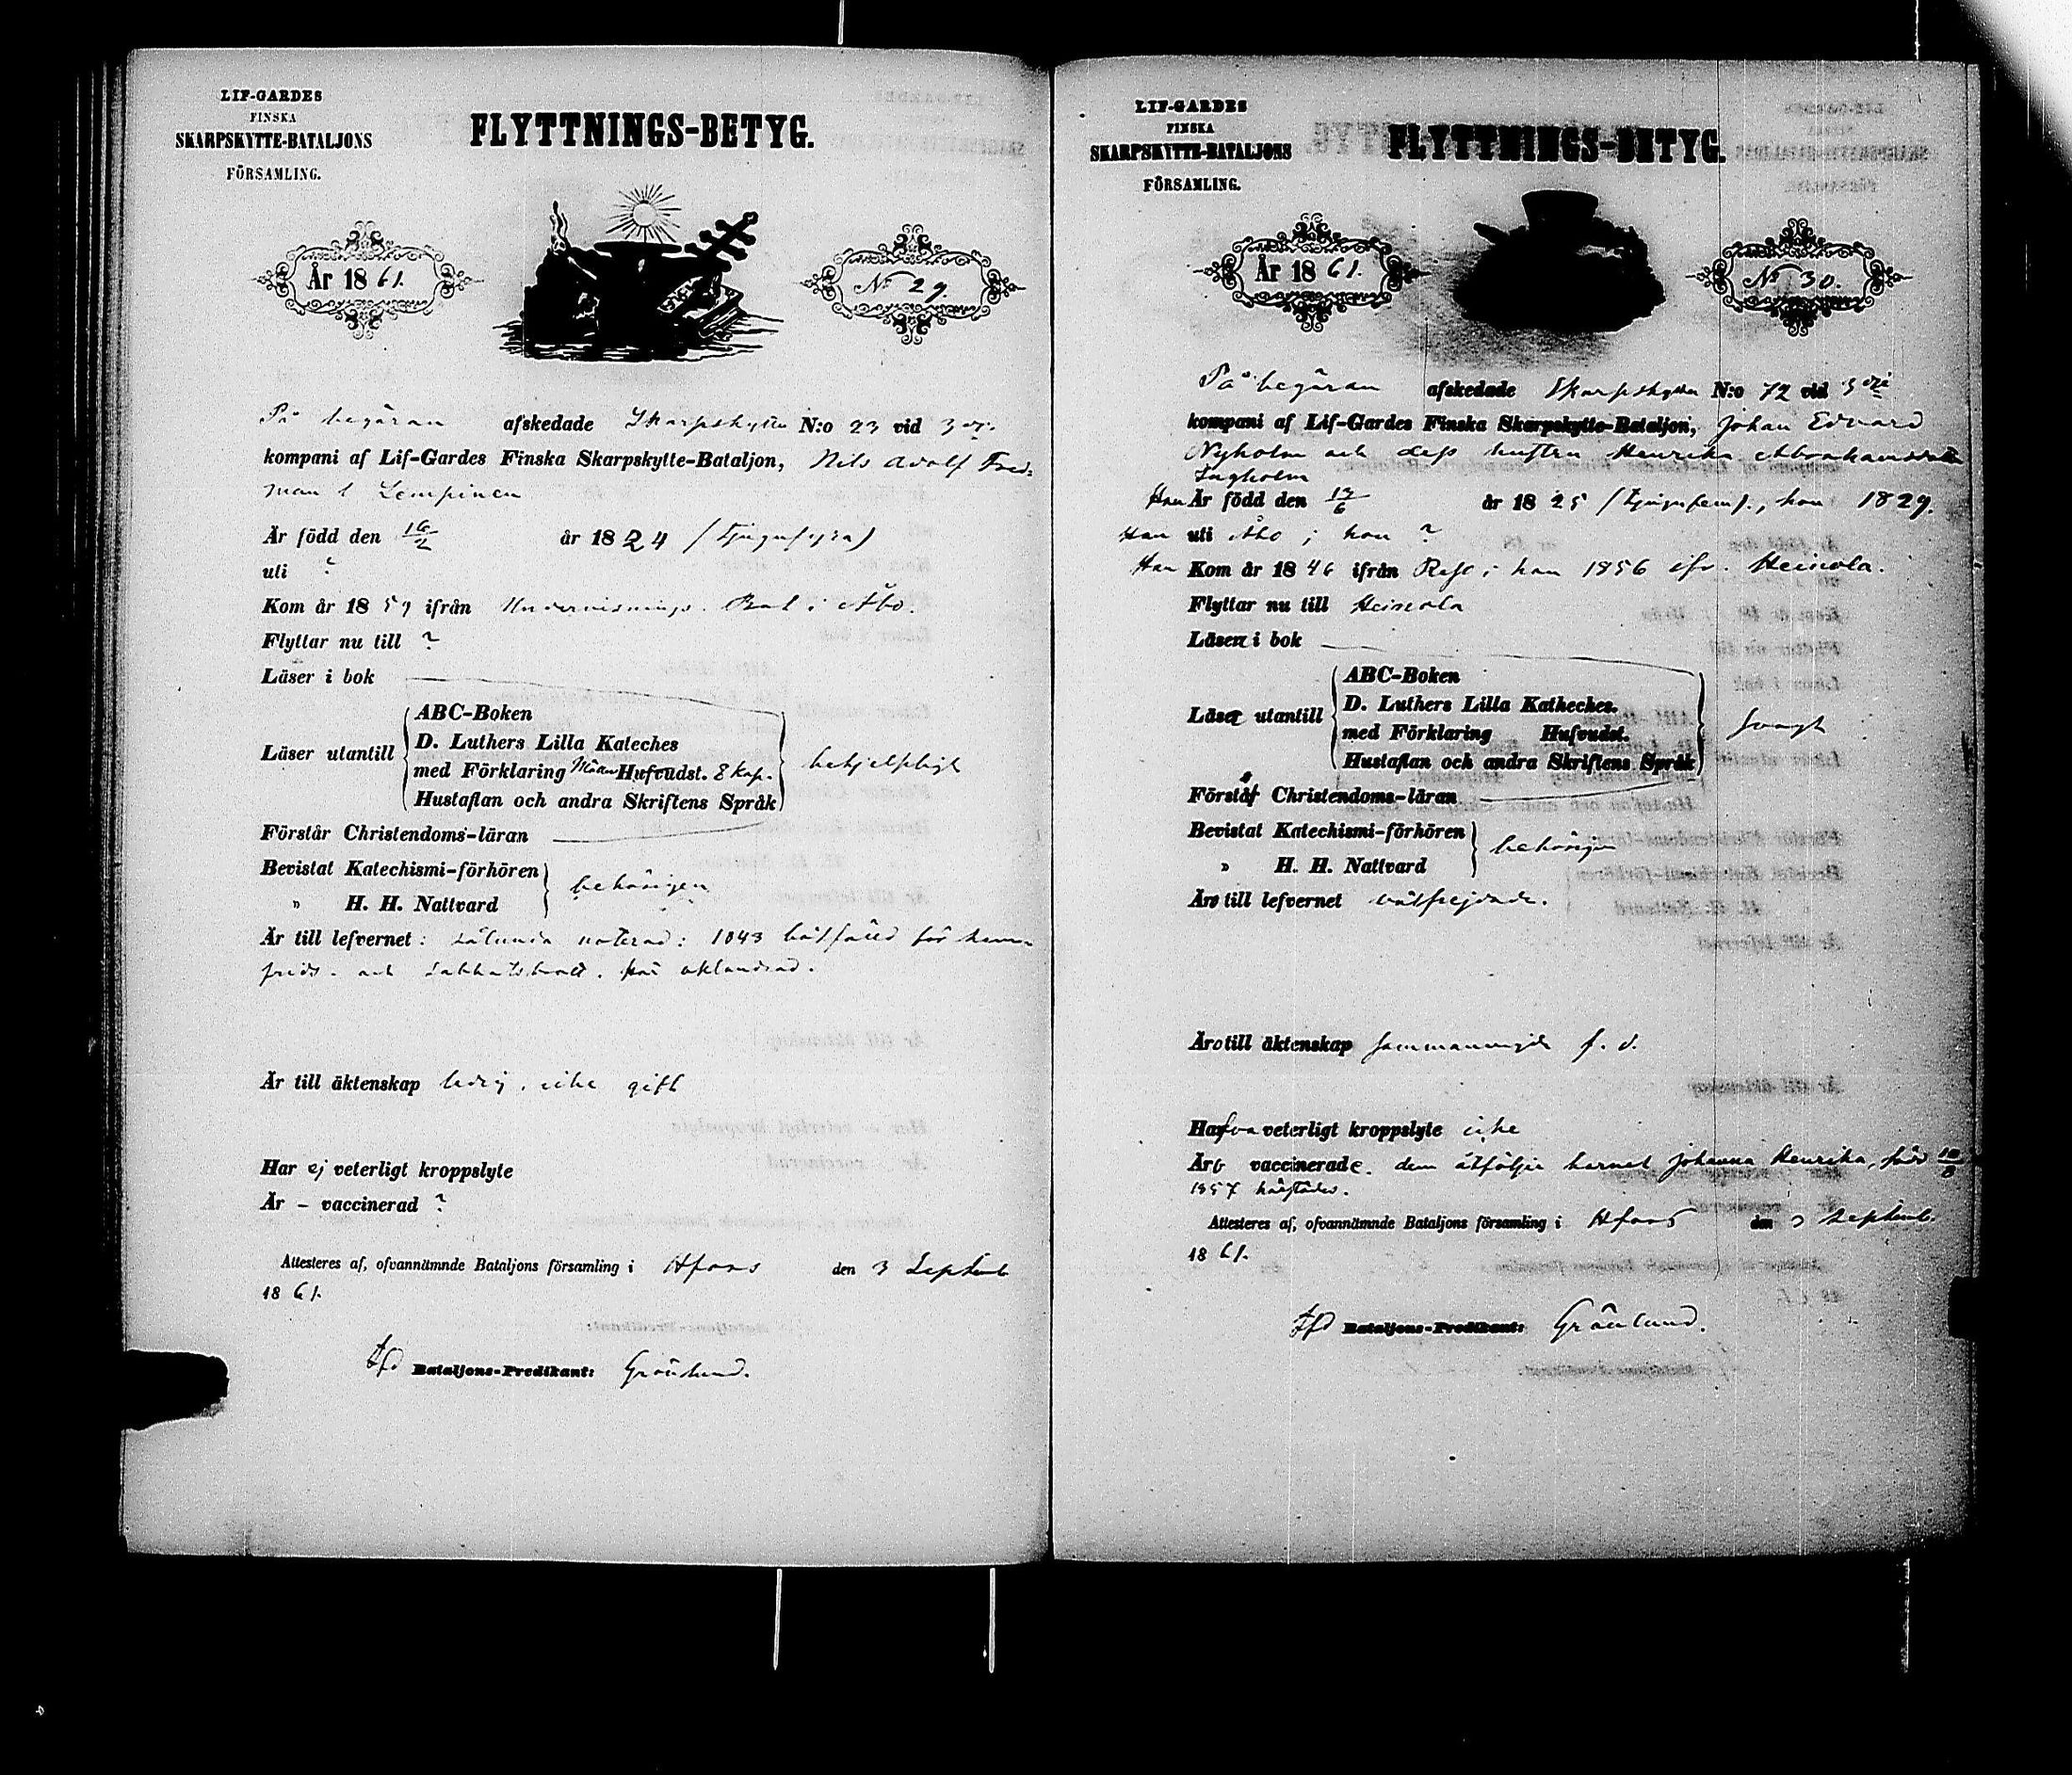 LIF-GARDES
FINSKA
SKARPSKYTTE-BATALJONS
FÖRSAMLING.
FLYTTNINGS-BETYG.
År 1861.
No 29.
På begäran afskedade Skarpskytte N:o 23 vid 3dje
kompani af Lif-Gardes Finska Skarpskytte-Bataljon, Nils Adolf Fred-
man l Lempinen
Är född den 16/2 år 1824 (tjugufyra)
uti ?
Kom år 1859 ifrån Undervisnings. Bat i Åbo.
Flyttar nu till ?
Läser i bok
Läser utantill
ABC-Boken
D. Luthers Lilla Kateches
med Förklaring Hufvudst. 8 kap.
Hustaflan och andra Skriftens Språk
behjelpligt
Förstår Christendoms-läran
Bevistat Katechismi-förhören
» H. H. Nattvard
behörigen
Är till lefvernet: sålunda noterad: 1843 bötfälld för hem-
frids- och sabbatsbrott. för oklandrad.
Är till äktenskap ledig, icke gift
Har ej veterligt kroppslyte
Är - vaccinerad ?
Attesteres af, ofvannämnde Bataljons församling i Hfors den 3 Septemb.
1861.
tf Bataljons-Predikant: Grönlund.
LIF-GARDES
FINSKA
SKARPSKYTTE-BATALJONS
FÖRSAMLING.
FLYTTNINGS-BETYG.
År 1861.
No 30.
På begäran afskedade Skarpskytten N:o 72 vid 3dje
kompani af Lif-Gardes Finska Skarpskytte-Bataljon, Johan Edvard
Nyholm och dess hustru Henrika Abrahamsdotter
Ingholm
Han Är född den 13/6 år 1825 (tjugufem)., hon 1829.
Han uti Åbo ; hon ?
Han Kom år 1846 ifrån ; hon 1856 ifr. Heinola.
Flyttar nu till Heinola
Läsa i bok
Läsa utantill
ABC-Boken
D. Luthers Lilla Katheches.
med Förklaring Hufvudst.
Hustaflan och andra Skriftens Språk
svagt
Förstå Christendoms-läran
Bevistat Katechismi-förhören
» H. H. Nattvard
behörigen
Äro till lefvernet välfrejdade.
Äro till äktenskap sammanvigde f. d.
Hafva veterligt kroppslyte icke
Äro vaccinerade. dem åtföljer barnet Johanna Henrika, född 10/8
1857 härstädes.
Attesteres af, ofvannämnde Bataljons församling i Hfors den 3 Septemb.
1861.
tf Bataljons-Predikant: Grönlund.